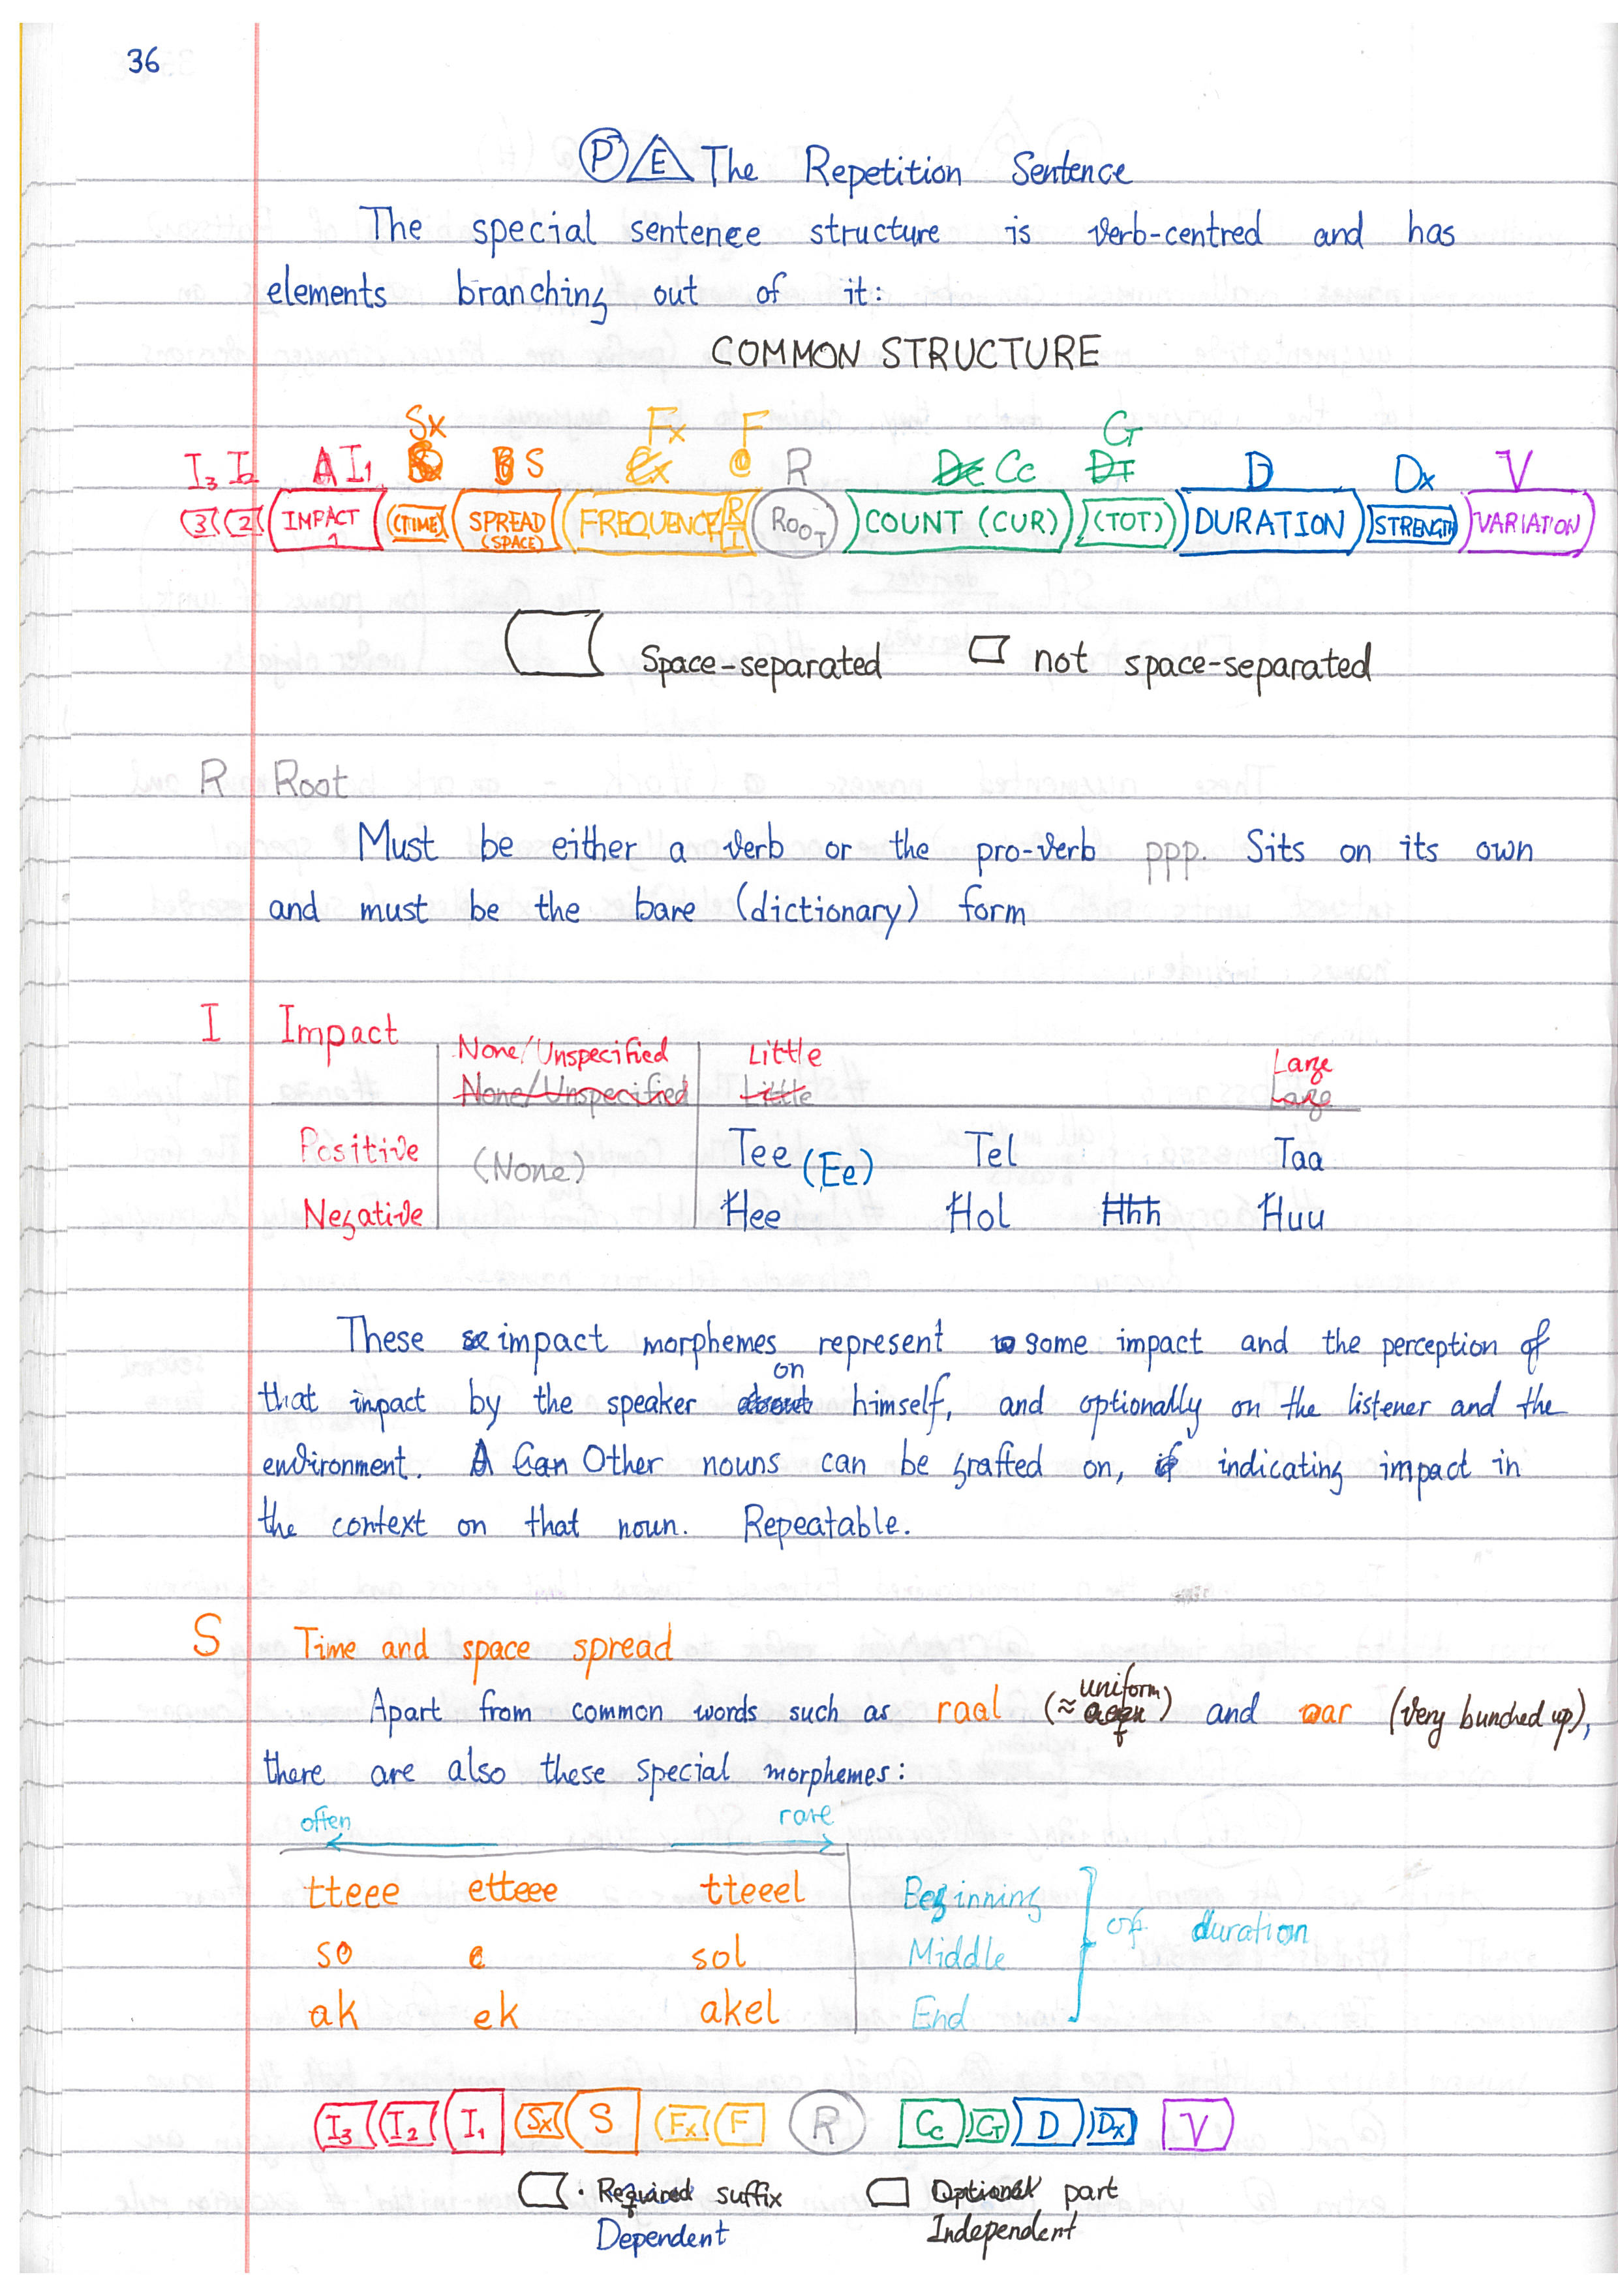 36
P E The Repetition Sentence
The special sentence structure is verb-centred and has
elements branching out of it:
COMMON STRUCTURE
Sx Fx F CT
I3 I2 I1 S R Cc D Dx V
3 2 IMPACT 1 (TIME) SPREAD (SPACE) FREQUENCE R I ROOT COUNT (CUR) (TOT) DURATION STRENGTH VARIATION
Space-separated not space-separated
R Root
Must be either a verb or the pro-verb ppp. Sits on its own
and must be the bare (dictionary) form
I Impact
None/Unspecified Little Large
None/Unspecified Little Large
Positive (None) Tee (Ee) Tel Taa
Negative Ħee Ħol Ħħħ Ħuu
These impact morphemes represent some impact and the perception of
that impact by the speaker on himself, and optionally on the listener and the
environment. Other nouns can be grafted on, indicating impact in
the context on that noun. Repeatable.
S Time and space spread
Apart from common words such as raal (≈ uniform) and oar (very bunched up),
there are also these special morphemes:
often rare
tteee etteee tteeel Beginning
so e sol Middle of duration
ak ek akel End
I3 I2 I1 Sx S Fx F R Cc CT D Dx V
Required suffix Optional part
Dependent Independent